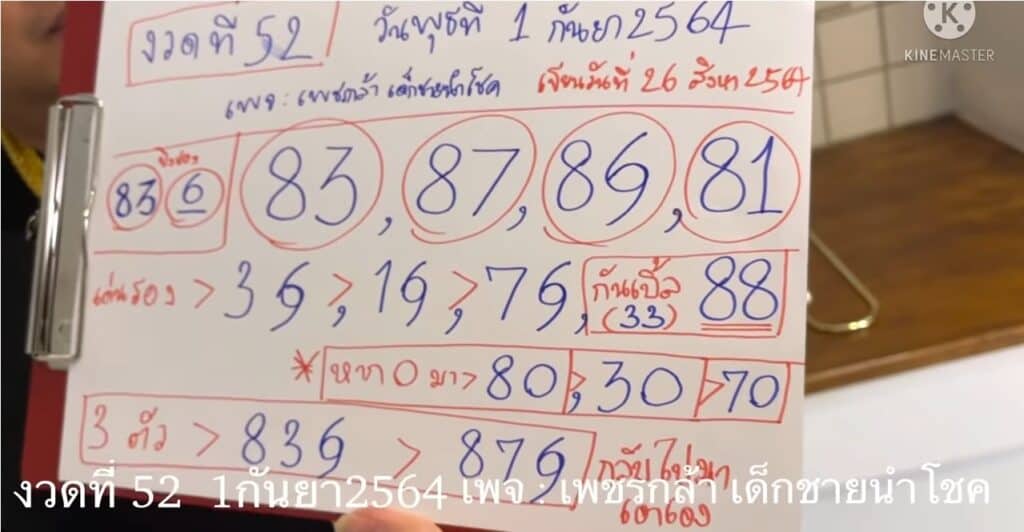 งวดที่ 52 วันพุธที่ 1 กันยา 2564
KINEMASTER
เพจ : เพชรกล้า เด็กชายนำโชค เขียนวันที่ 26 สิงหา 2564
83 6 83, 87, 89, 81
เด่นรอง > 39 > 19 > 79, กันเบิ้ล (33) 88
* หาก 0 มา > 80 > 30 > 70
3 ตัว > 839 > 879 กลับไปมา
เอาเอง
งวดที่ 52 1กันยา2564 เพจ : เพชรกล้า เด็กชายนำโชค